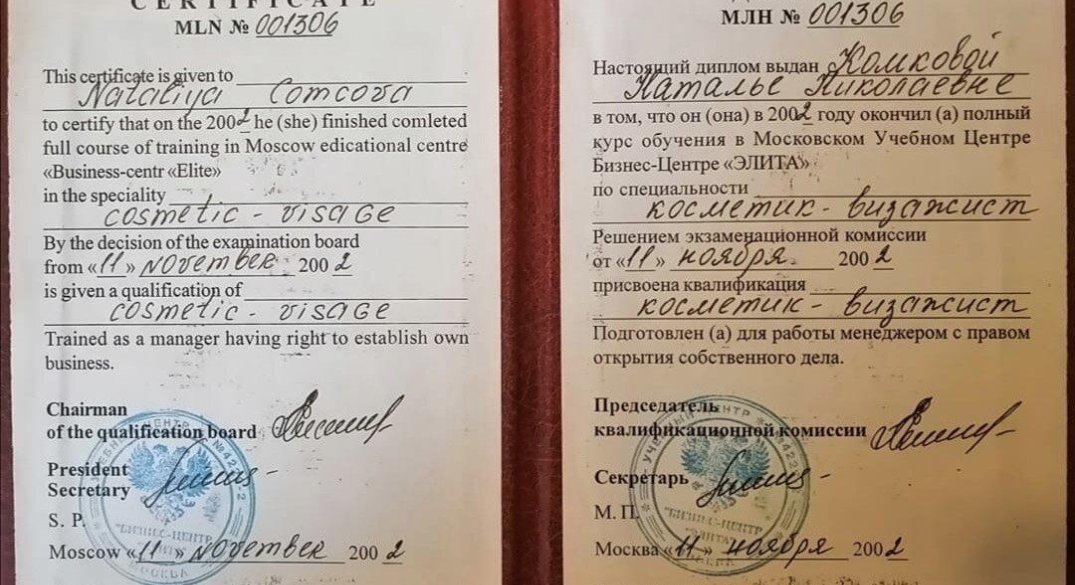 CERTIFICATE
MLN № 001306
This certificate is given to
Nataliya Comcova
to certify that on the 2002 he (she) finished comleted
full course of training in Moscow edicational centre
«Business-centr «Elite»
in the speciality
cosmetic - visage
By the decision of the examination board
from «11» november 2002
is given a qualification of
cosmetic - visage
Trained as a manager having right to establish own
business.
Chairman
of the qualification board
President
Secretary
S. P.
Moscow «11» november 2002
МЛН № 001306
Настоящий диплом выдан Комковой
Наталье Николаевне
в том, что он (она) в 2002 году окончил (а) полный
курс обучения в Московском Учебном Центре
Бизнес-Центре «ЭЛИТА»
по специальности
косметик - визажист
Решением экзаменационной комиссии
от «11» ноября 2002
присвоена квалификация
косметик - визажист
Подготовлен (а) для работы менеджером с правом
открытия собственного дела.
Председатель
квалификационной комиссии
Секретарь
М. П.
Москва «11» ноября 2002
УЧЕБНЫЙ ЦЕНТР
"БИЗНЕС-ЦЕНТР
МОСКВА